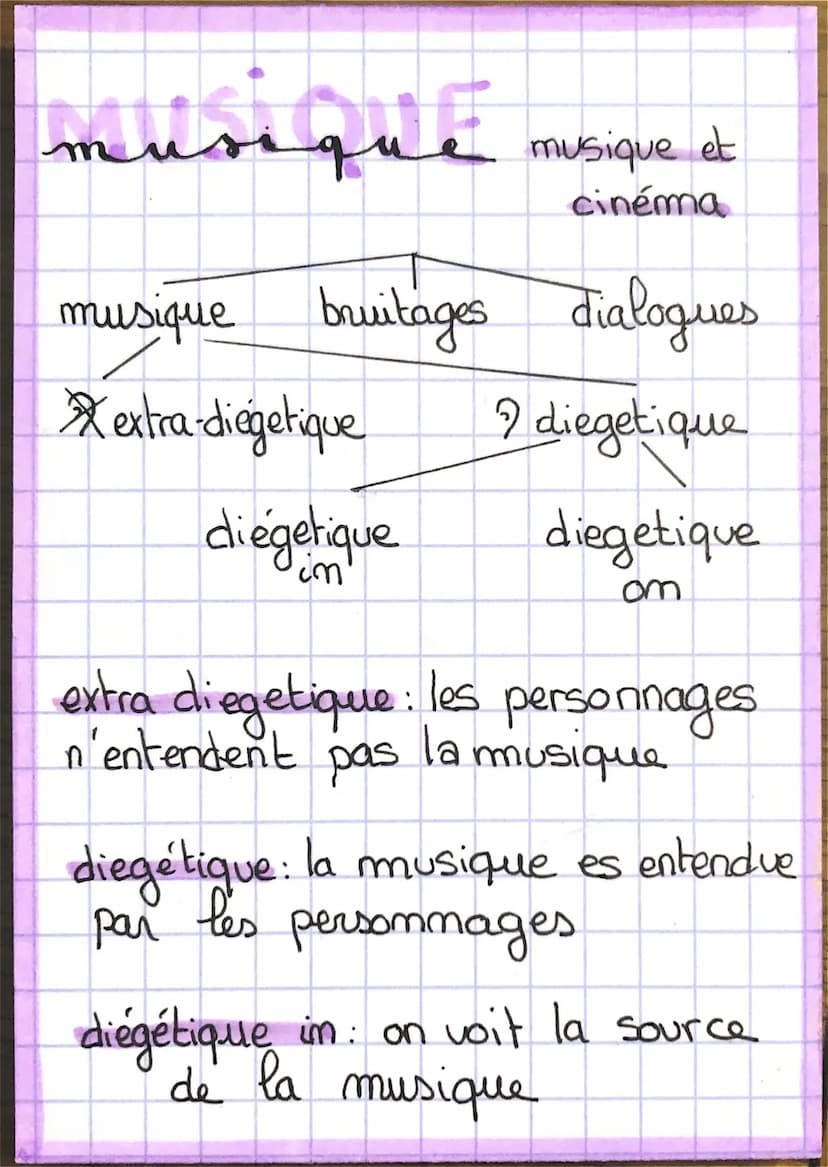 MUSiQUE
musique
musique et
cinéma
musique bruitages dialogues
extra-diégetique diegetique
diégetique
in
diegetique
on
extra diegetique : les personnages
n'entendent pas la musique
diegétique : la musique es entendue
par les personnages
diégétique in : on voit la source
de la musique